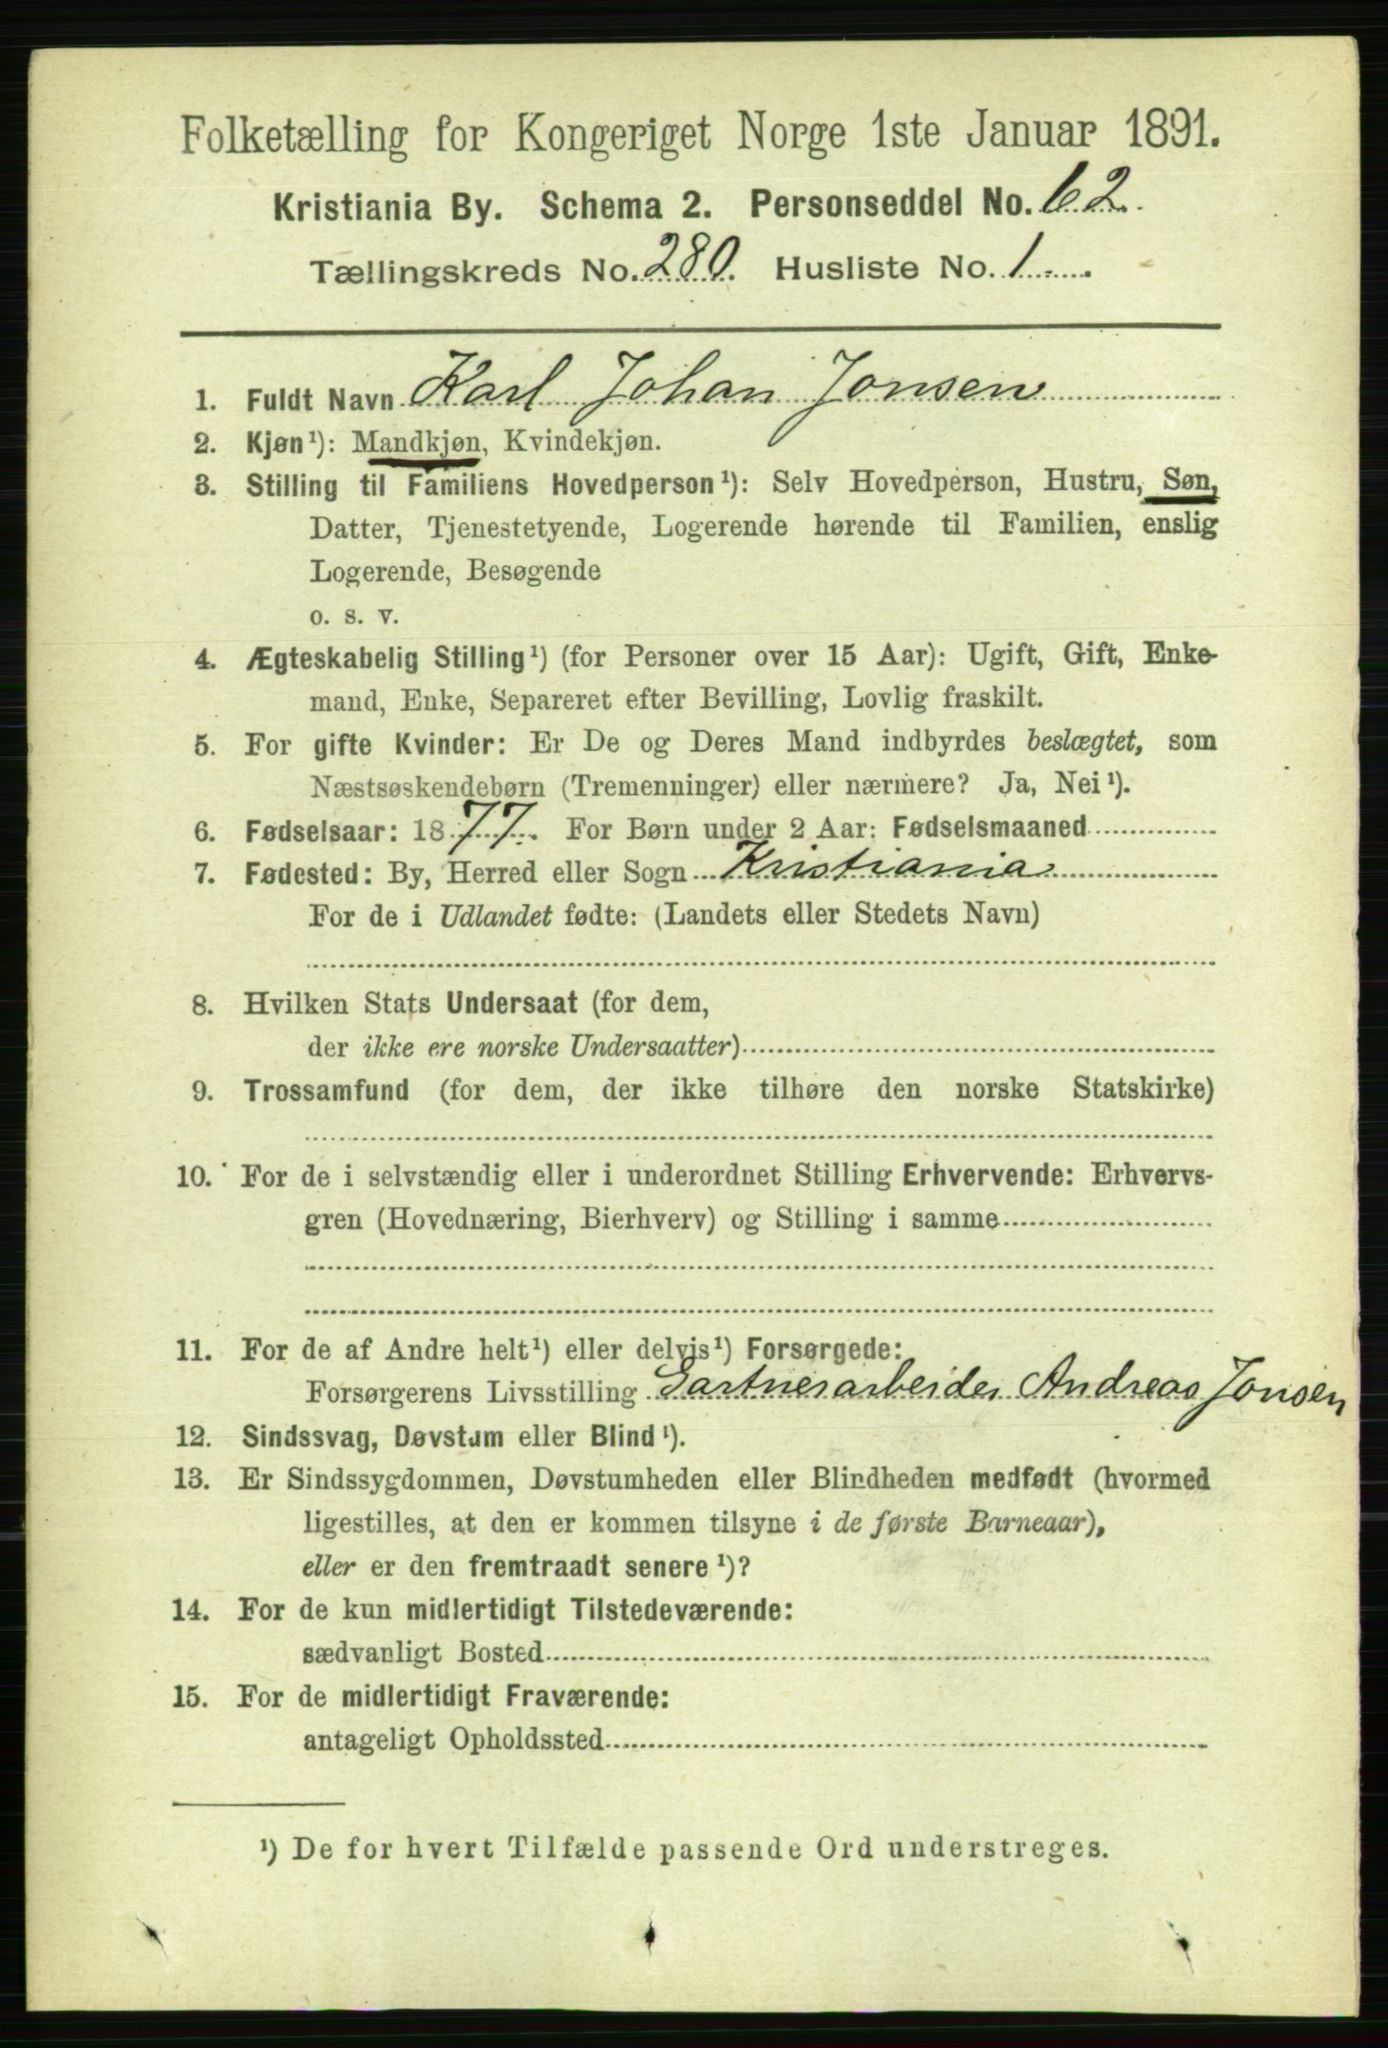 Folketælling for Kongeriget Norge 1ste Januar 1891.
Kristiania By. Schema 2. Personseddel No. 62.
Tællingskreds No. 280. Husliste No. 1
1. Fuldt Navn Karl Johan Jonsen
2. Kjøn¹): Mandkjøn, Kvindekjøn.
3. Stilling til Familiens Hovedperson¹): Selv Hovedperson, Hustru, Søn,
Datter, Tjenestetyende, Logerende hørende til Familien, enslig
Logerende, Besøgende
o. s. v.
4. Ægteskabelig Stilling¹) (for Personer over 15 Aar): Ugift, Gift, Enke-
mand, Enke, Separeret efter Bevilling, Lovlig fraskilt.
5. For gifte Kvinder: Er De og Deres Mand indbyrdes beslægtet, som
Næstsøskendebørn (Tremenninger) eller nærmere? Ja, Nei¹).
6. Fødselsaar: 1877. For Børn under 2 Aar: Fødselsmaaned
7. Fødested: By, Herred eller Sogn Kristiania
For de i Udlandet fødte: (Landets eller Stedets Navn)
8. Hvilken Stats Undersaat (for dem,
der ikke ere norske Undersaatter)
9. Trossamfund (for dem, der ikke tilhøre den norske Statskirke)
10. For de i selvstændig eller i underordnet Stilling Erhvervende: Erhvervs-
gren (Hovednæring, Bierhverv) og Stilling i samme
11. For de af Andre helt¹) eller delvis¹) Forsørgede:
Forsørgerens Livsstilling Gartnerarbeider Andreas Jonsen
12. Sindssvag, Døvstum eller Blind¹).
13. Er Sindssygdommen, Døvstumheden eller Blindheden medfødt (hvormed
ligestilles, at den er kommen tilsyne i de første Barneaar),
eller er den fremtraadt senere¹)?
14. For de kun midlertidigt Tilstedeværende:
sædvanligt Bosted
15. For de midlertidigt Fraværende:
antageligt Opholdssted
¹) De for hvert Tilfælde passende Ord understreges.